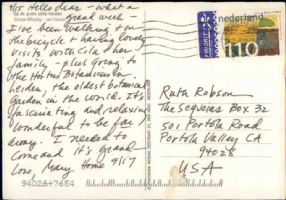 9/15 Hello dear - what a
grand week -
I've been walking on
the bicycle & having lovely
visits with Cila & her
family - plus going to
the Hortus Botanicus in
Leiden, the oldest botanical
garden in the world. It's
fascinating and relaxing
Wonderful to be far
away. I needed to
come and it's grand
Love, Mary Home 9/17
9402A+7654
nederland
PRIORITY
110
Ruth Robson
The Sequoias Box 32
501 Portola Road
Portola Valley CA
94028
USA